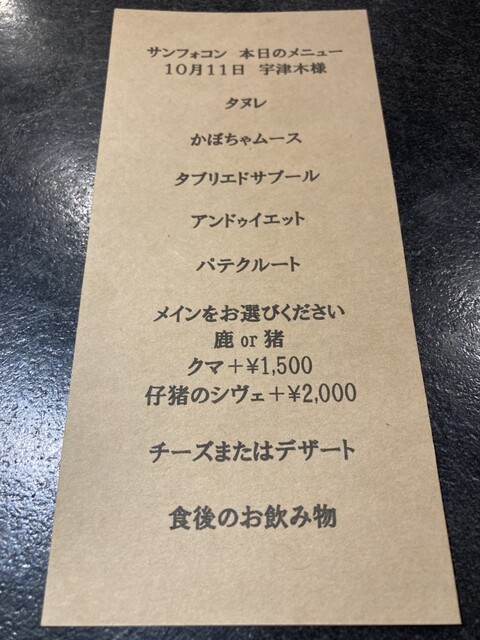 サンフォコン 本日のメニュー
10月11日 宇津木様
タヌレ
かぼちゃムース
タブリエドサブール
アンドゥイエット
パテクルート
メインをお選びください
鹿 or 猪
クマ+¥1,500
仔猪のシヴェ+¥2,000
チーズまたはデザート
食後のお飲み物